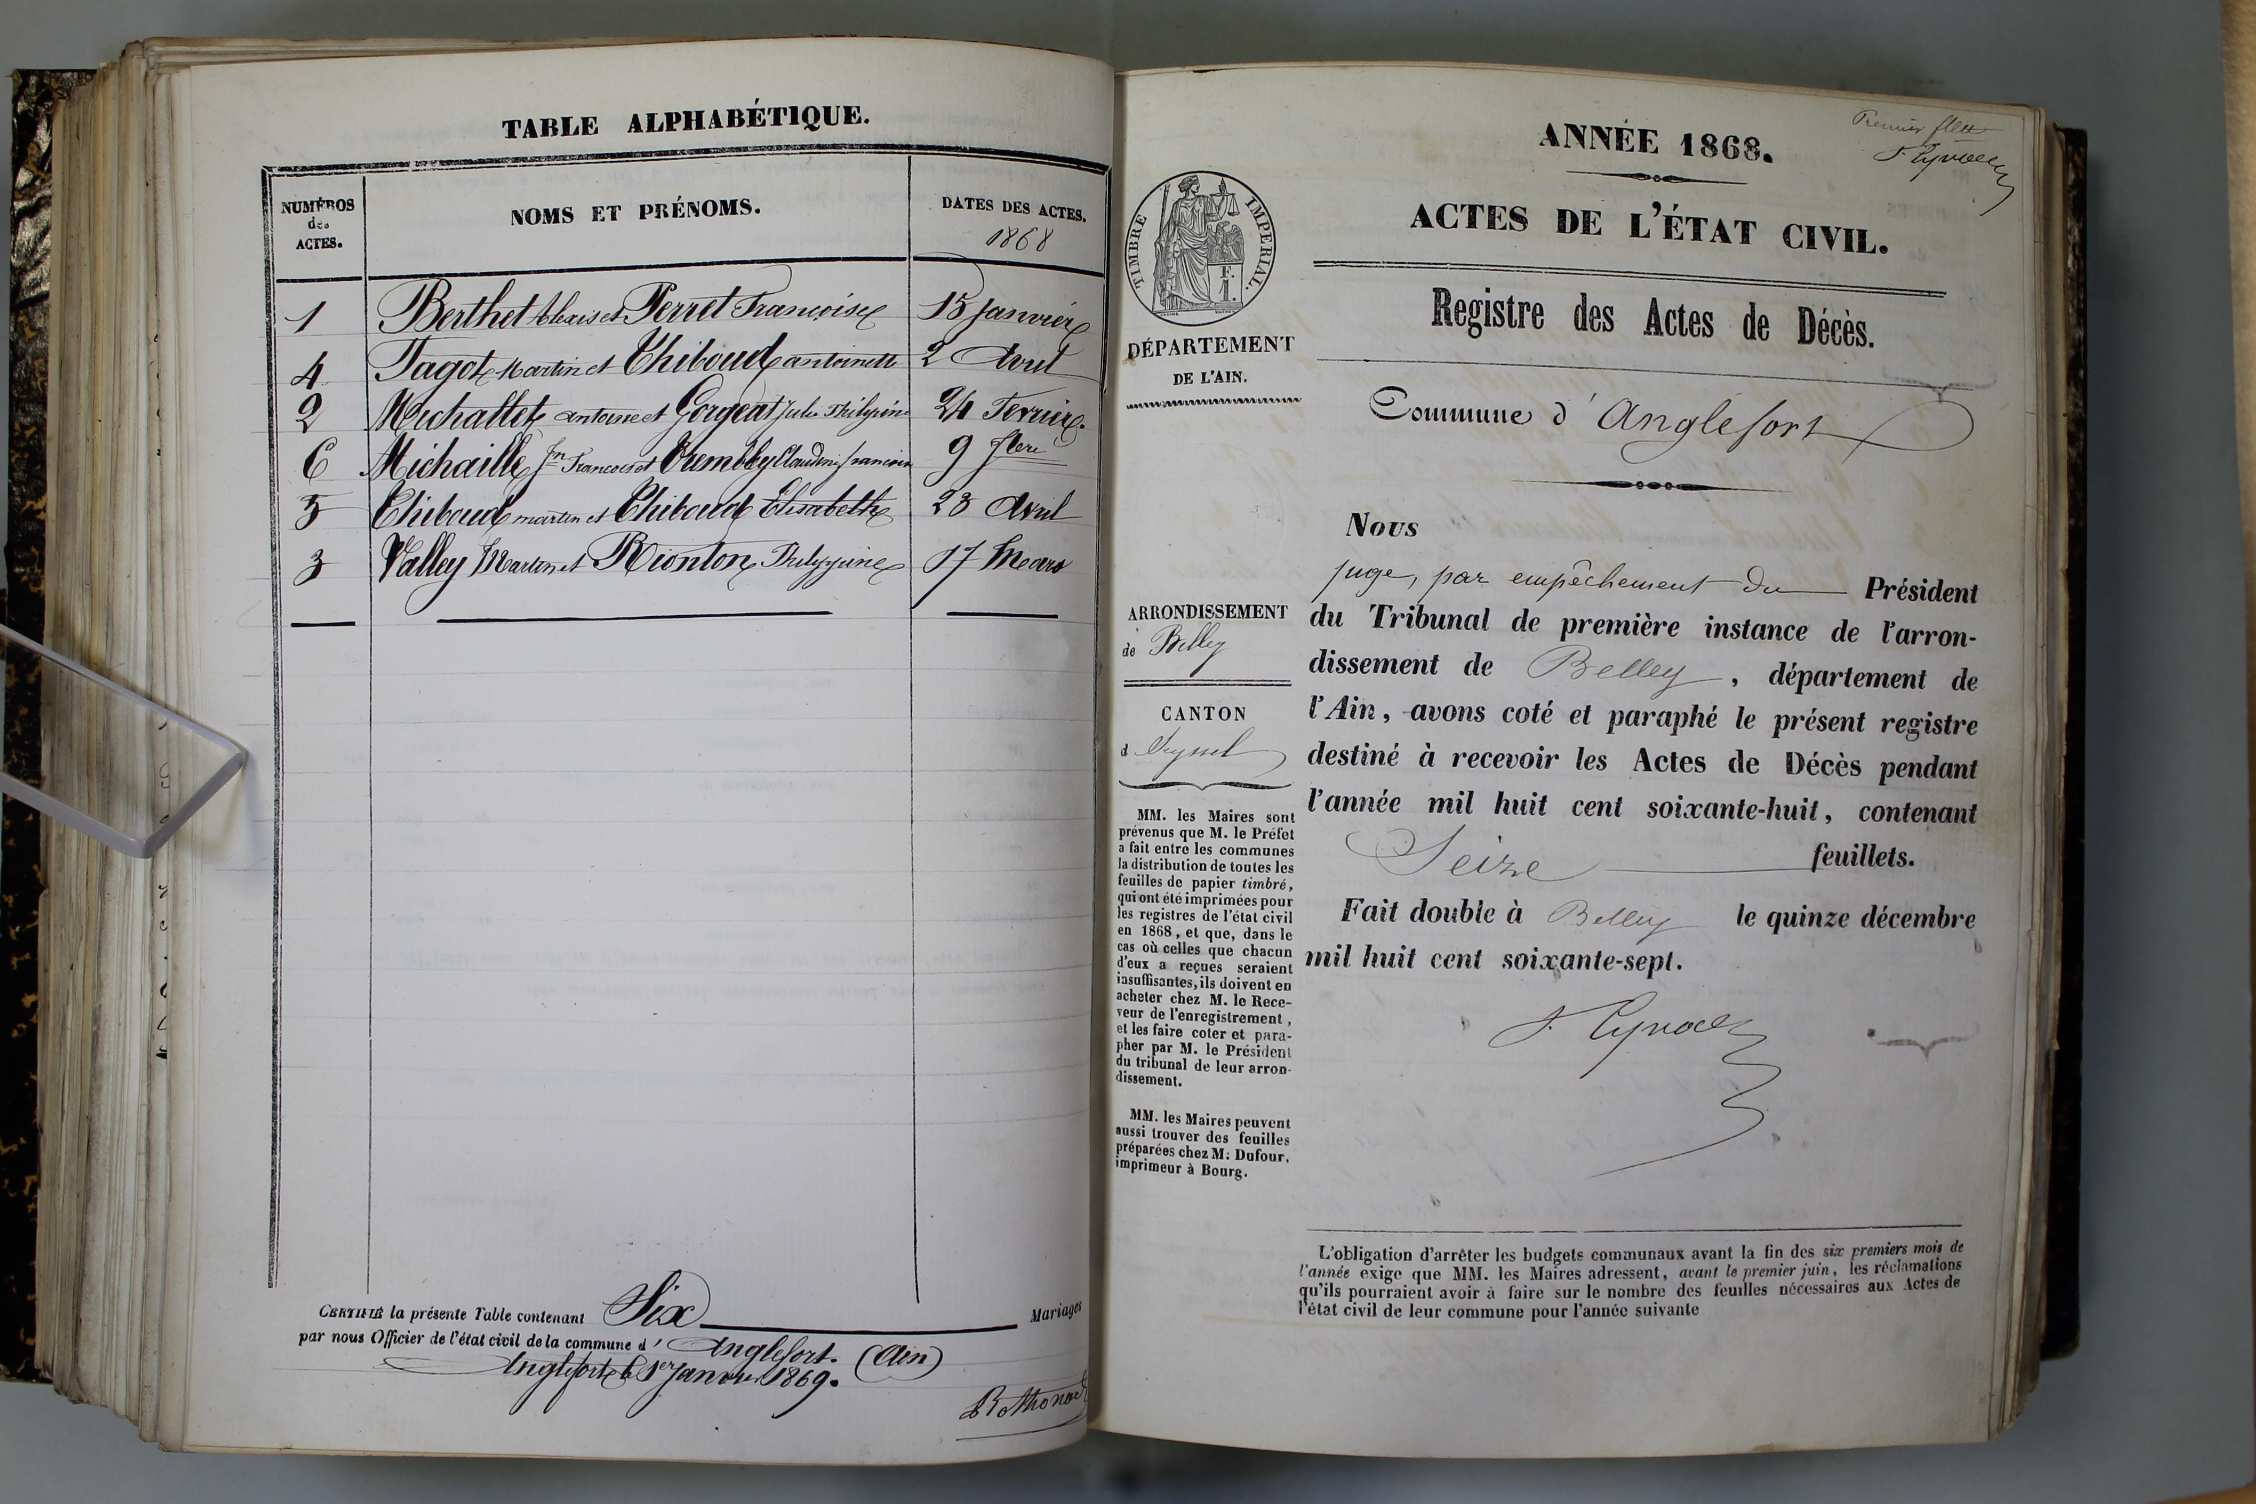 TABLE ALPHABÉTIQUE.
NUMÉROS des ACTES.
NOMS ET PRÉNOMS.
DATES DES ACTES.
1868
1 Berthet Alexis et Perret Françoise 15 Janvier
4 Pagot Martin et Thiboud antoinette 2 Avril
2 Michallet antoine et Gorgeat Julie Philipine 24 Fevrier.
6 Michaille Jn Francois et Claudine francoise 9
5 Thiboud martin et Thiboud Elisabeth 23 Avril
3 Valley Martin et Rionton Philippine 17 Mars
CERTIFIÉ la présente Table contenant Six Mariages
par nous Officier de l'état civil de la commune d' Anglefort. (Ain)
Anglefort le 1er Janvier 1869.
Bothonod
Premier
ANNÉE 1868.
ACTES DE L'ÉTAT CIVIL.
TIMBRE IMPERIAL.
F.
1.
DÉPARTEMENT
DE L'AIN.
Registre des Actes de Décès.
Commune d' Anglefort
Nous
juge, par empêchement du Président
du Tribunal de première instance de l'arron-
dissement de Belley, département de
l'Ain, avons coté et paraphé le présent registre
destiné à recevoir les Actes de Décès pendant
l'année mil huit cent soixante-huit, contenant
Seize feuillets.
Fait double à Belley le quinze décembre
mil huit cent soixante-sept.
ARRONDISSEMENT
de Belley
CANTON
d Seyssel
MM. les Maires sont
prévenus que M. le Préfet
a fait entre les communes
la distribution de toutes les
feuilles de papier timbré,
qui ont été imprimées pour
les registres de l'état civil
en 1868, et que, dans le
cas où celles que chacun
d'eux a reçues seraient
insuffisantes, ils doivent en
acheter chez M. le Rece-
veur de l'enregistrement,
et les faire coter et para-
pher par M. le Président
du tribunal de leur arron-
dissement.
MM. les Maires peuvent
aussi trouver des feuilles
préparées chez M. Dufour,
imprimeur à Bourg.
L'obligation d'arrêter les budgets communaux avant la fin des six premiers mois de
l'année exige que MM. les Maires adressent, avant le premier juin, les réclamations
qu'ils pourraient avoir à faire sur le nombre des feuilles nécessaires aux Actes de
l'état civil de leur commune pour l'année suivante